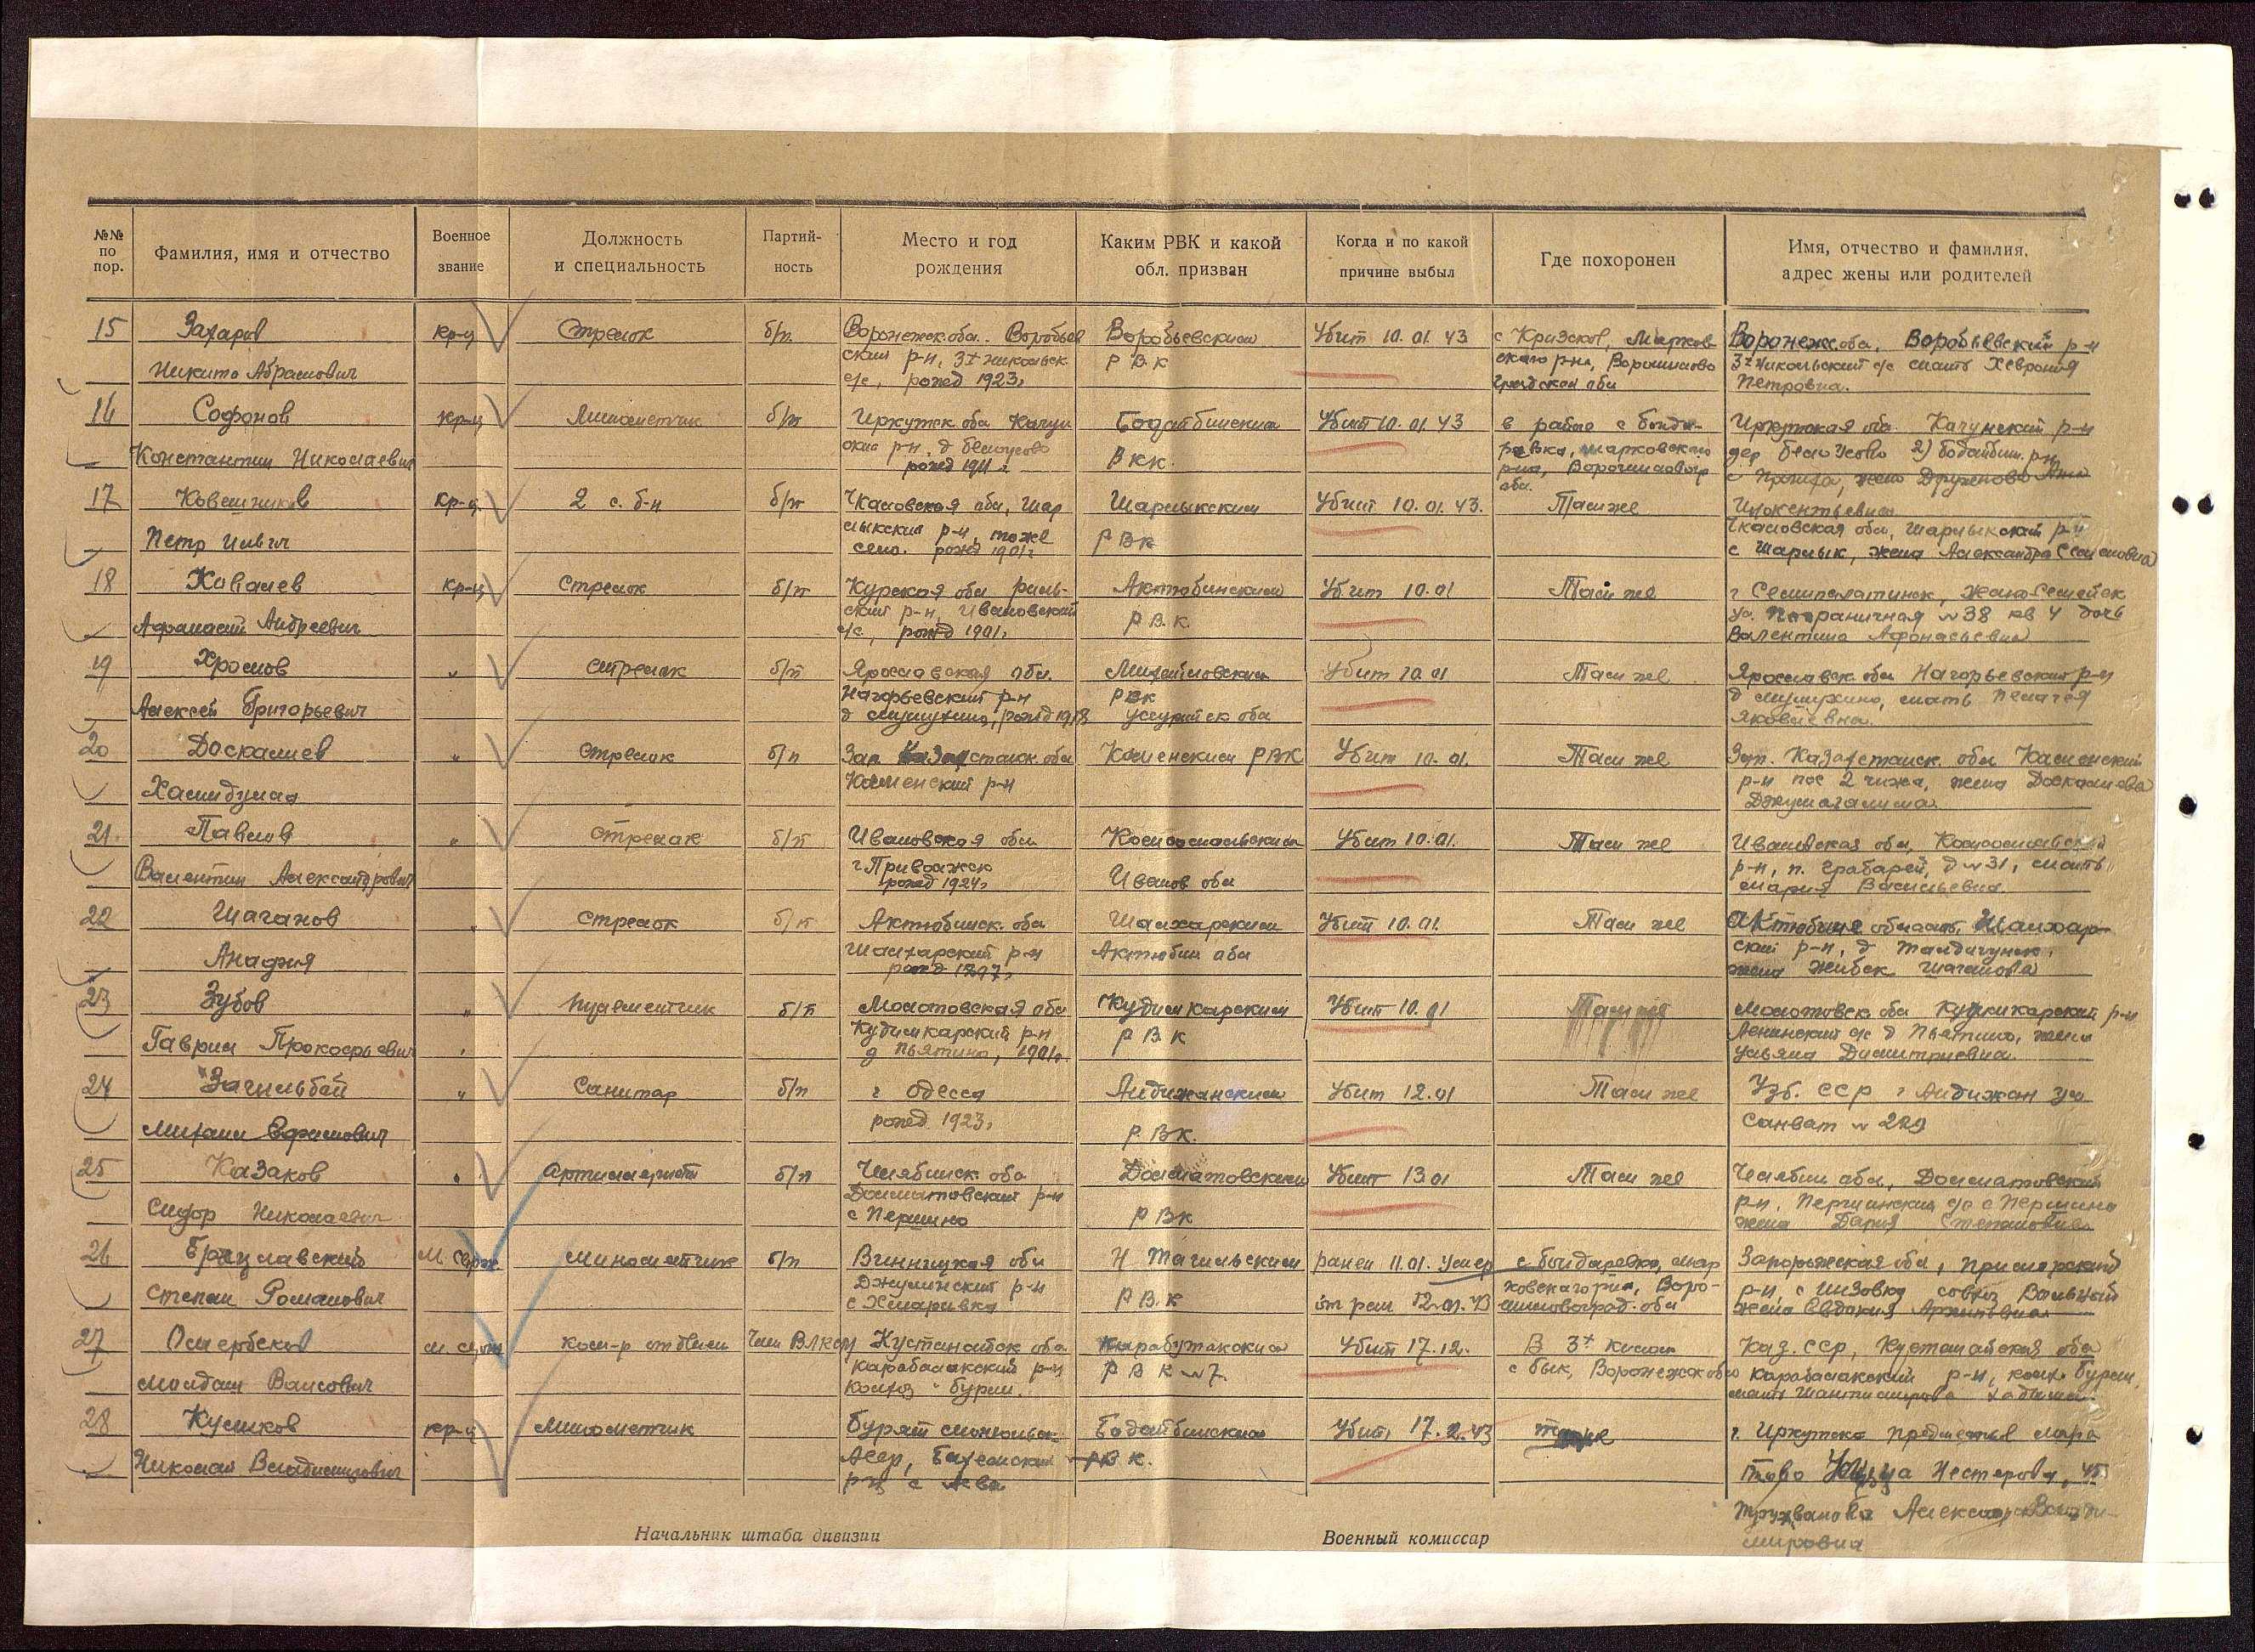 №№ по пор.
Фамилия, имя и отчество
Военное звание
Должность и специальность
Партий- ность
Место и год рождения
Каким РВК и какой обл. призван
Когда и по какой причине выбыл
Где похоронен
Имя, отчество и фамилия, адрес жены или родителей
15 Захаров кр-ц Стрелок б/п Воронеж. обл. Воробьев Воробьевским Убит 10.01.43 с Кризское, Марков Воронеж обл. Воробьевский р-н
Никита Абрамович ский р-н, 3й Никольск РВК ского р-на, Ворошилово 3й Никольский с/с мать Хеврония
с/с, рожд 1923г градской обл Петровна.
16 Софонов кр-ц Минометчик б/п Иркутск обл Качуг Бодайбинским Убит 10.01.43 в районе с Бонда- Иркутская обл. Качугский р-н
Константин Николаевич ский р-н, д Белоусово ВКК. ревка, Марковского дер Белоусово 2) Бодайбин. р-н
рожд 1911г. р-на, Ворошиловогр жена Дружинова Анна
обл.
17 Ковешников кр-ц 2 с. б-н б/п Чкаловская обл, Шар Шарлыкским Убит 10.01.43. Там же Инокентьевна
Петр Ильич лыкский р-н, тоже РВК Чкаловская обл, Шарлыкский р-н
село. рожд 1901г с Шарлык, жена Александра Семеновна
18 Ковалев кр-ц Стрелок б/п Курская обл Рыль- Актюбинским Убит 10.01 Там же г Семипалатинск, Жана-Семейск
Афанасий Андреевич ский р-н, Ивановский Р.В.К. ул. Пограничная №38 кв 4 дочь
с/с, рожд 1901г Валентина Афонасьевна
19 Хромов " стрелок б/п Ярославская обл. Михайловским Убит 10.01 Там же Ярославск обл Нагорьевский р-н
Алексей Григорьевич Нагорьевский р-н РВК мать Пелагея
рожд 1918 Уссурийск обл Яковлевна.
20 Доскалиев " Стрелок б/п Зап Казахстанск. обл Каменским РВК Убит 10.01. Там же Зап. Казахстанск. обл Каменский
Каменский р-н р-н пос 2 Чижа, жена Доскалиева
21. Павлов " Стрелок б/п Ивановская обл Комсомольским Убит 10.01. Там же Ивановская обл, Комсомольский
Валентин Александрович г. Приволжск Иванов обл р-н, п. Грабарей, д №31, мать
рожд 1924г Мария Васильевна.
22 Шаганов " Стрелок б/п Актюбинск. обл Шалкарским Убит 10.01. Там же Актюбинск область, Шалкар-
Анафия Шалкарский р-н Актюбин обл ский р-н, д
рожд 1897г жена Жибек Шаганова
23 Зубов " пулеметчик б/п Молотовская обл Кудымкарским Убит 10.01 Там же Молотовск обл Кудымкарский р-н
Гаврил Прокофьевич Кудымкарский р-н РВК Ленинский с/с д Пьятино, жена
д Пьятино, 1901г. Ульяна Дмитриевна.
24 Загильбай " Санитар б/п г Одесса Андижанским Убит 12.01 Там же Узб. ССР г Андижан ул
Михаил Ефимович рожд 1923г РВК. Санват № 229
25 Казаков " Артиллерист б/п Челябинск. обл Долматовским Убит 13.01 Там же Челябин обл, Долматовский
Сидор Николаевич Долматовский р-н РВК р-н, Першинский с/с с Першино
с Першино жена Дария Степановна
26 Брацлавский м. серж. минометчик б/п Винницкая обл Н Тагильским ранен 11.01. Умер с Бондаревка, Мар Запорожская обл, Приморский
Степан Романович Джулинский р-н Р.В.К от ран 12.01.43 ковского р-на, Воро- р-н, с Инзовка совхоз Вольный
с Хмаривка шиловоград. обл жена Евдокия Архиповна
27 Омербеков м серж ком-р отделен Член ВЛКСМ Кустанайск обл Карабутакским Убит 17.12. В 3х килом Каз. ССР, Кустанайская обл
Молдаш Ваисович Карабалакский р-н РВК №7. с Бык, Воронежск обл Карабалакский р-н,
28 Куликов кр-ц Минометчик Бурят монгольск Бодайбинским Убит 17.2.43 г. Иркутск предместья Мара
Николай Владимирович АССР, РВК. тово Улица Нестерова, 45
Александра Влади-
мировна
Начальник штаба дивизии
Военный комиссар